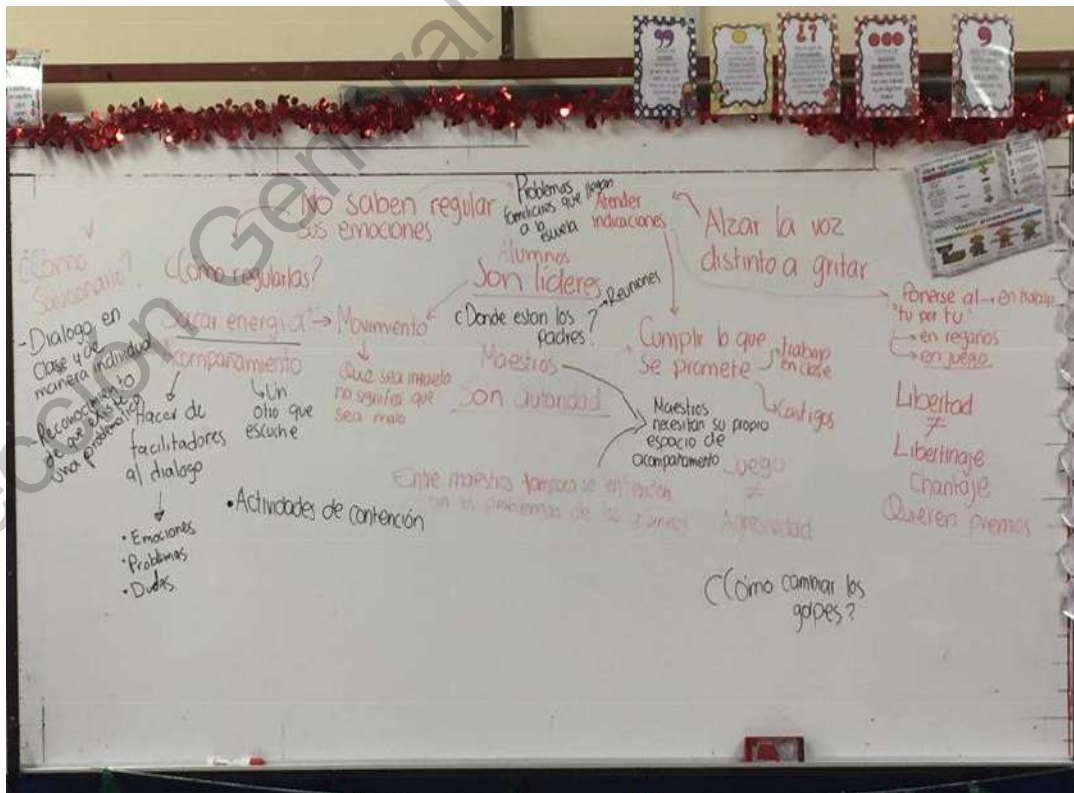 ¿Como
Solucionarlo?
- Dialogo en
clase y de
manera individual
- Reconocimiento
de que existe
una problemática
No saben regular
sus emociones
¿Como regularlas?
Sacar energia → Movimiento
Acompañamiento
↳ Un
otro que
escuche
Hacer de
facilitadores
al dialogo
• Emociones
• Problemas
• Dudas
Que sea inquieto
no significa que
sea malo
• Actividades de contención
Problemas
familiares que llegan
a la
escuela
Alumnos
Son líderes
¿Donde estan los
padres?
→ Reuniones
Maestros
Son autoridad
Maestros
necesitan su propio
espacio de
acompañamento
Entre maestros tampoco se entienden
con los problemas de los alumnos
Atender
indicaciones
Alzar la voz
distinto a gritar
Cumplir lo que
se promete
trabajo
en clase
Kastigos
Juego
≠
Agresividad
¿Cómo cambiar los
golpes?
Ponerse al → en trabajo
"tu por tu"
→ en regaños
→ en juego
Libertad
≠
Libertinaje
Chantaje
Quieren premios
Dirección General